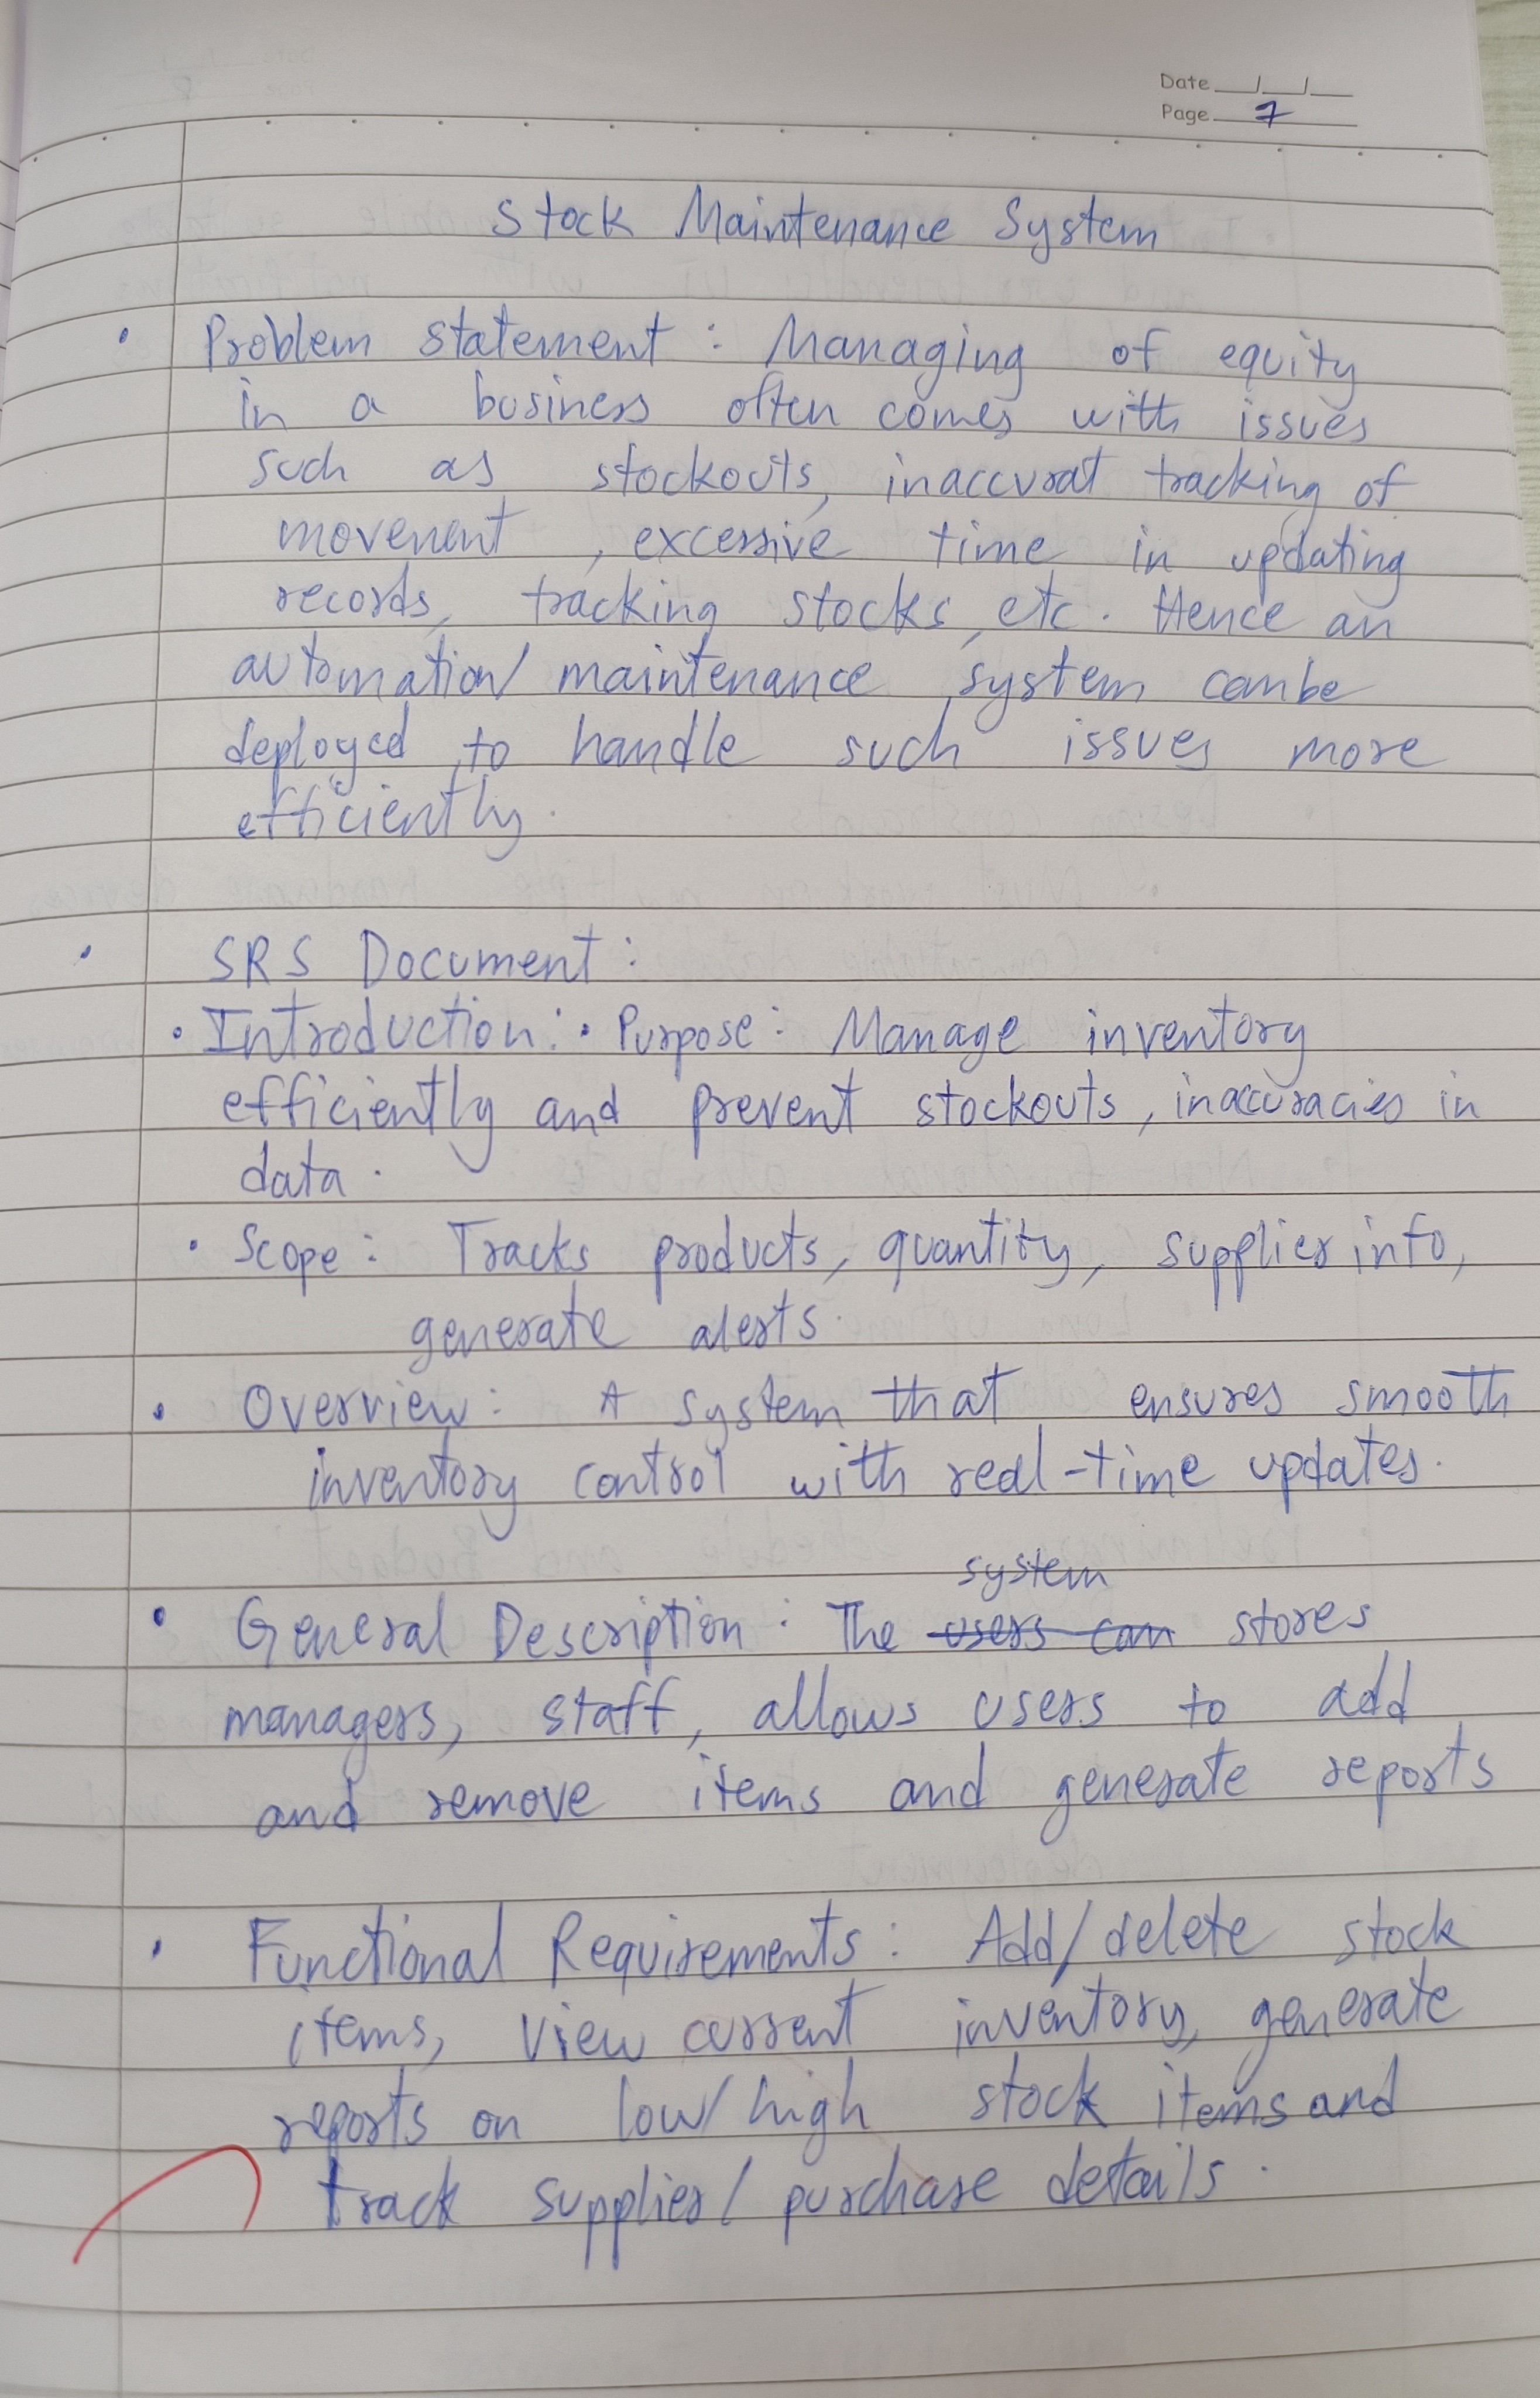 Date __/__/__
Page 7
Stock Maintenance System
• Problem statement : Managing of equity
in a business often comes with issues
such as stockouts, inaccurat tracking of
movement , excessive time in updating
records, tracking stocks, etc. Hence an
automation/ maintenance system canbe
deployed to handle such issues more
efficiently.
• SRS Document :
• Introduction : • Purpose : Manage inventory
efficiently and prevent stockouts, inaccuracies in
data.
• Scope : Tracks products, quantity, supplier info,
generate alerts.
• Overview : A system that ensures smooth
inventory control with real-time updates.
system
• General Description : The users can stores
managers, staff, allows users to add
and remove items and generate reports
• Functional Requirements : Add/delete stock
items, view current inventory, generate
reports on low/high stock items and
track supplier/ purchase details.